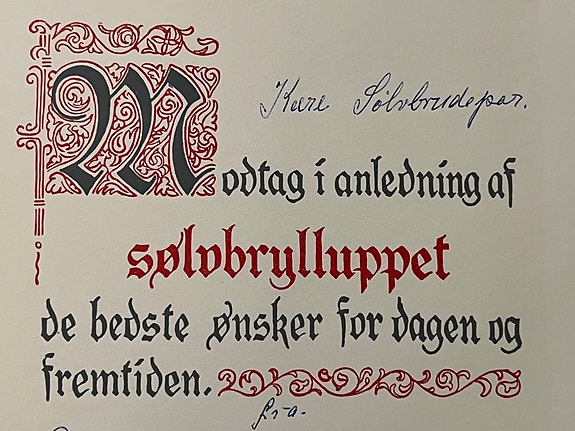 Kære Sølvbrudepar.
Modtag i anledning af
sølvbrylluppet
de bedste ønsker for dagen og
fremtiden.
fra.